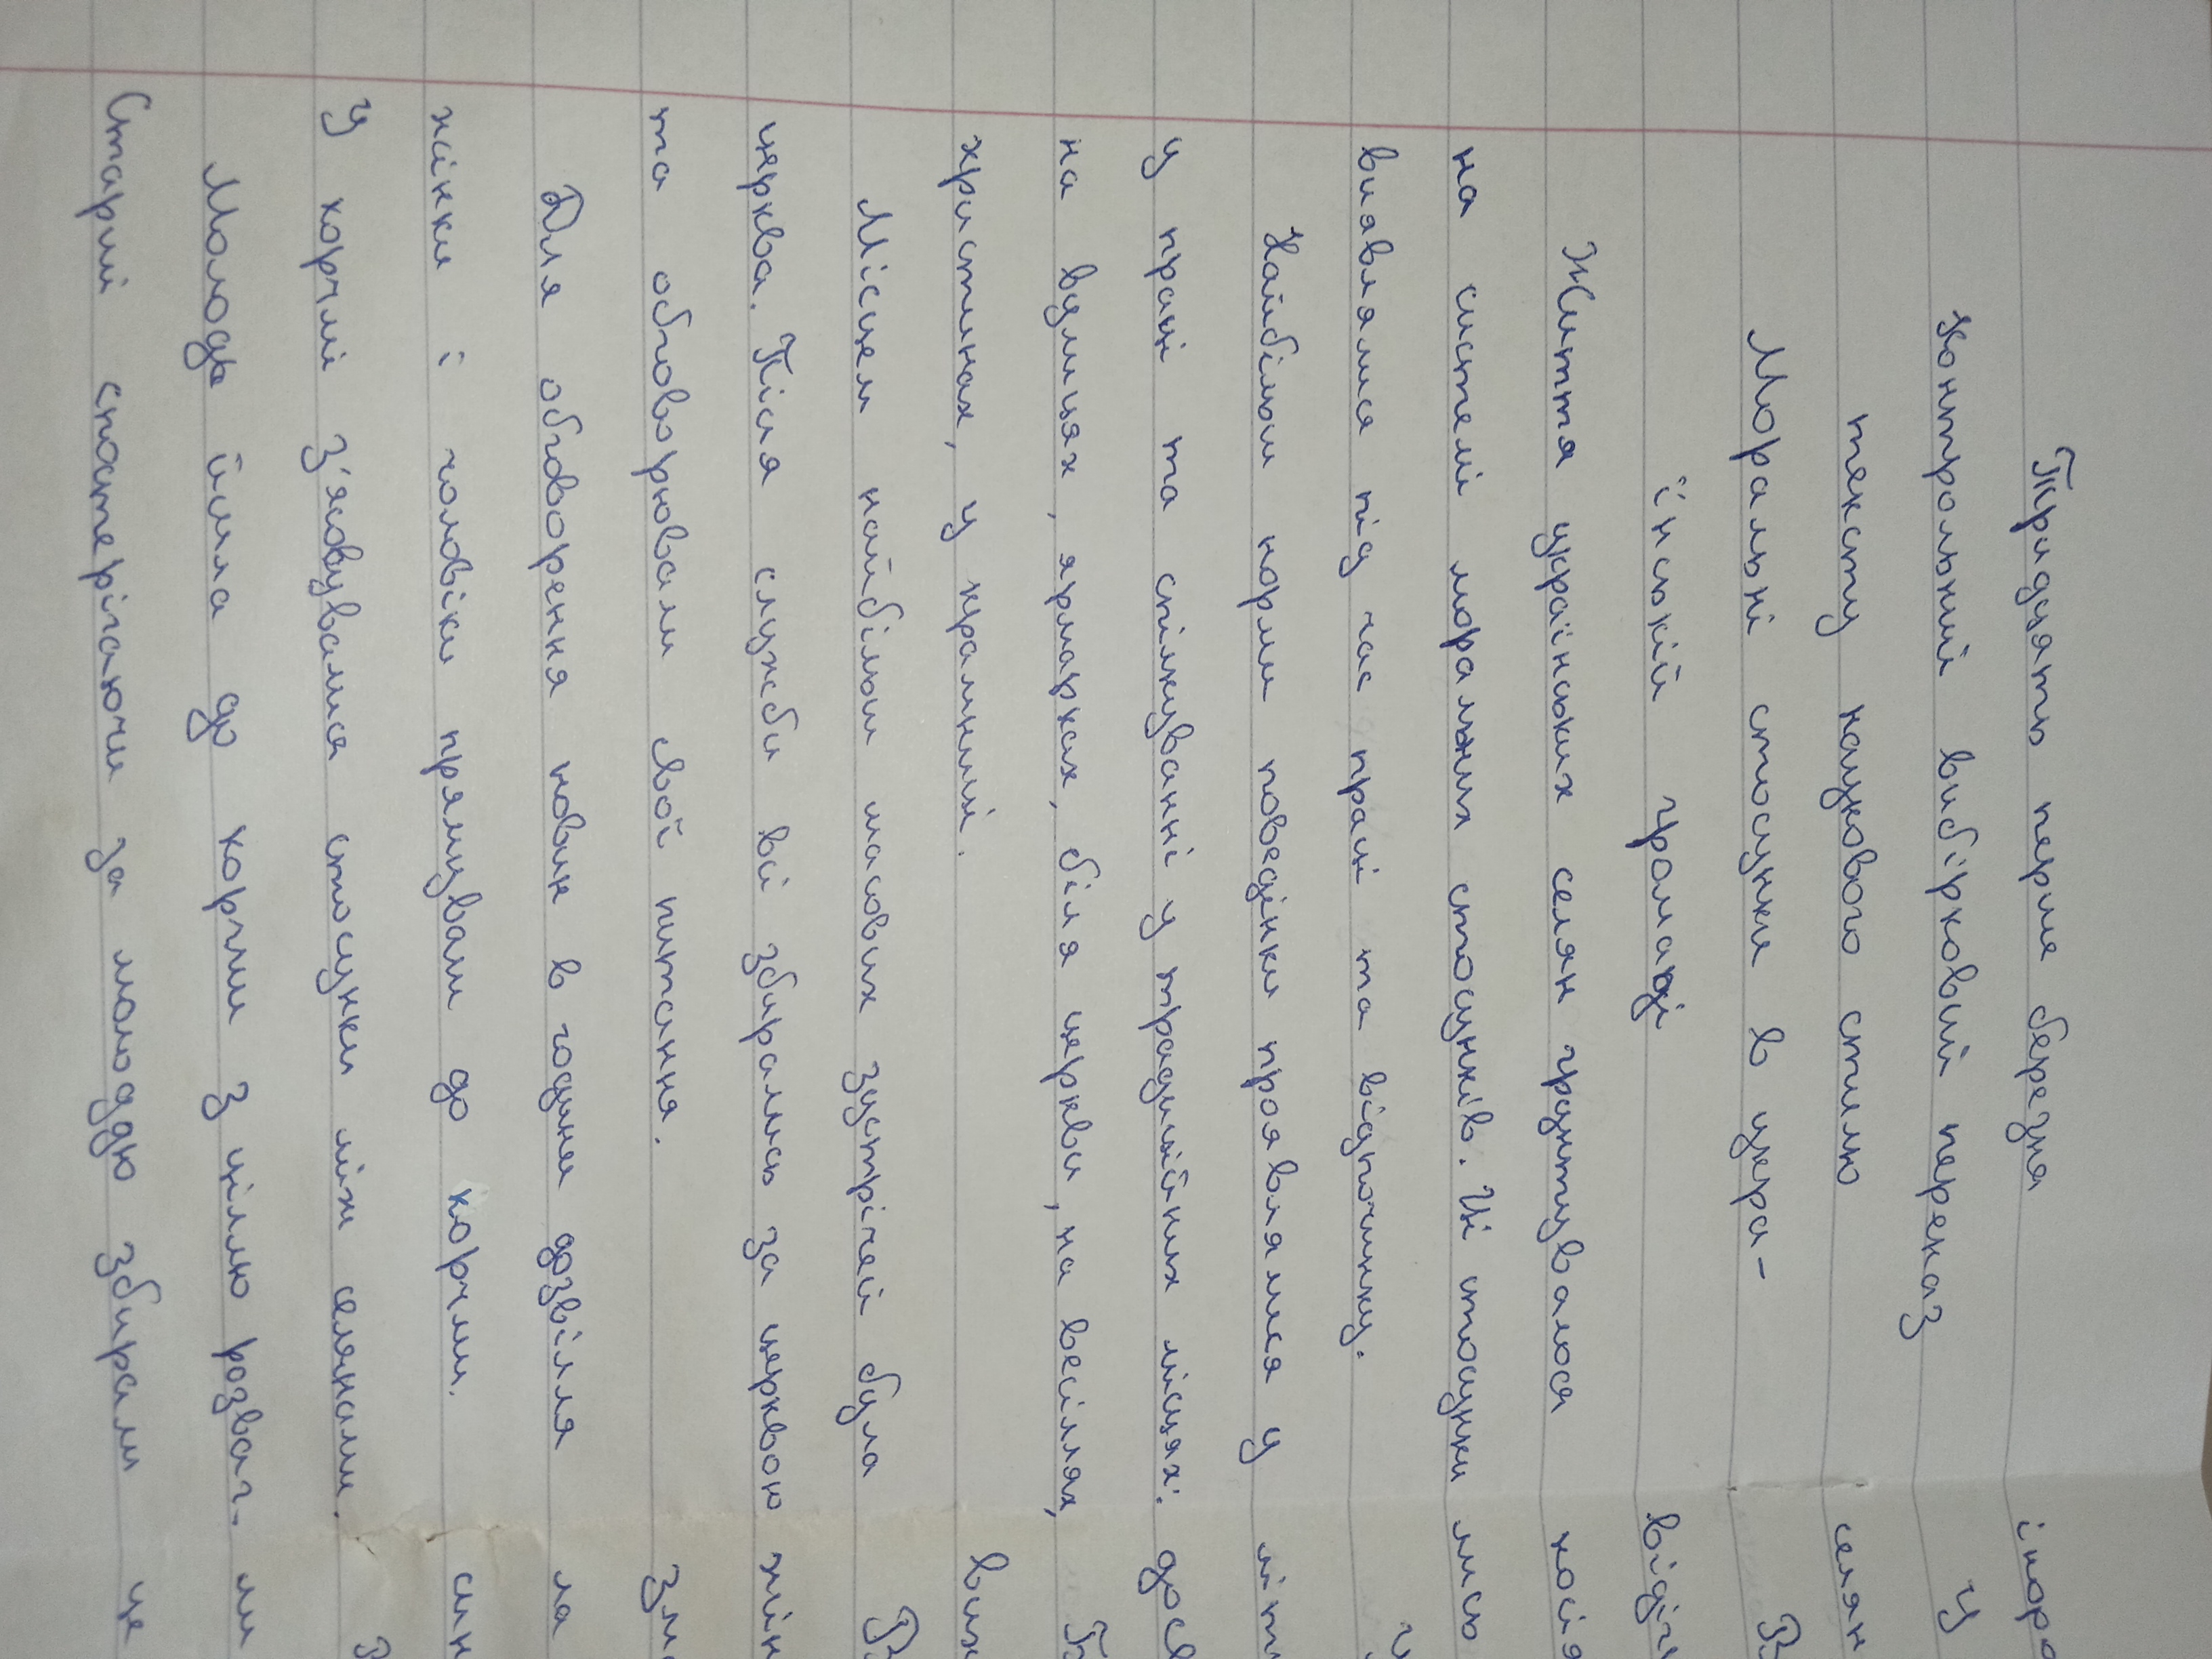 Тридцять перше березня
Контрольний вибірковий переказ
тексту наукового стилю
Моральні стосунки в укра-
їнській громаді
Життя українських селян грунтувалося
на системі моральних стосунків. Ці стосунки
виявлялися під час праці та відпочинку.
Найбільш норми поведінки проявлялися у
у праці та спілкуванні у традиційних місцях:
на вулицях, ярмарках, біля церкви, на весіллях,
христинах, у крамниці.
Місцем найбільш масових зустрічей була
церква. Після служби всі збирались за церквою
та обговорювали свої питання.
Для обговорення новин в години дозвілля
жінки і чоловіки прямували до корчми.
У корчмі з'ясовувалися стосунки між селянами.
Молодь йшла до корчми з ціллю розваг.
Старші спостерігаючи за молоддю збирали